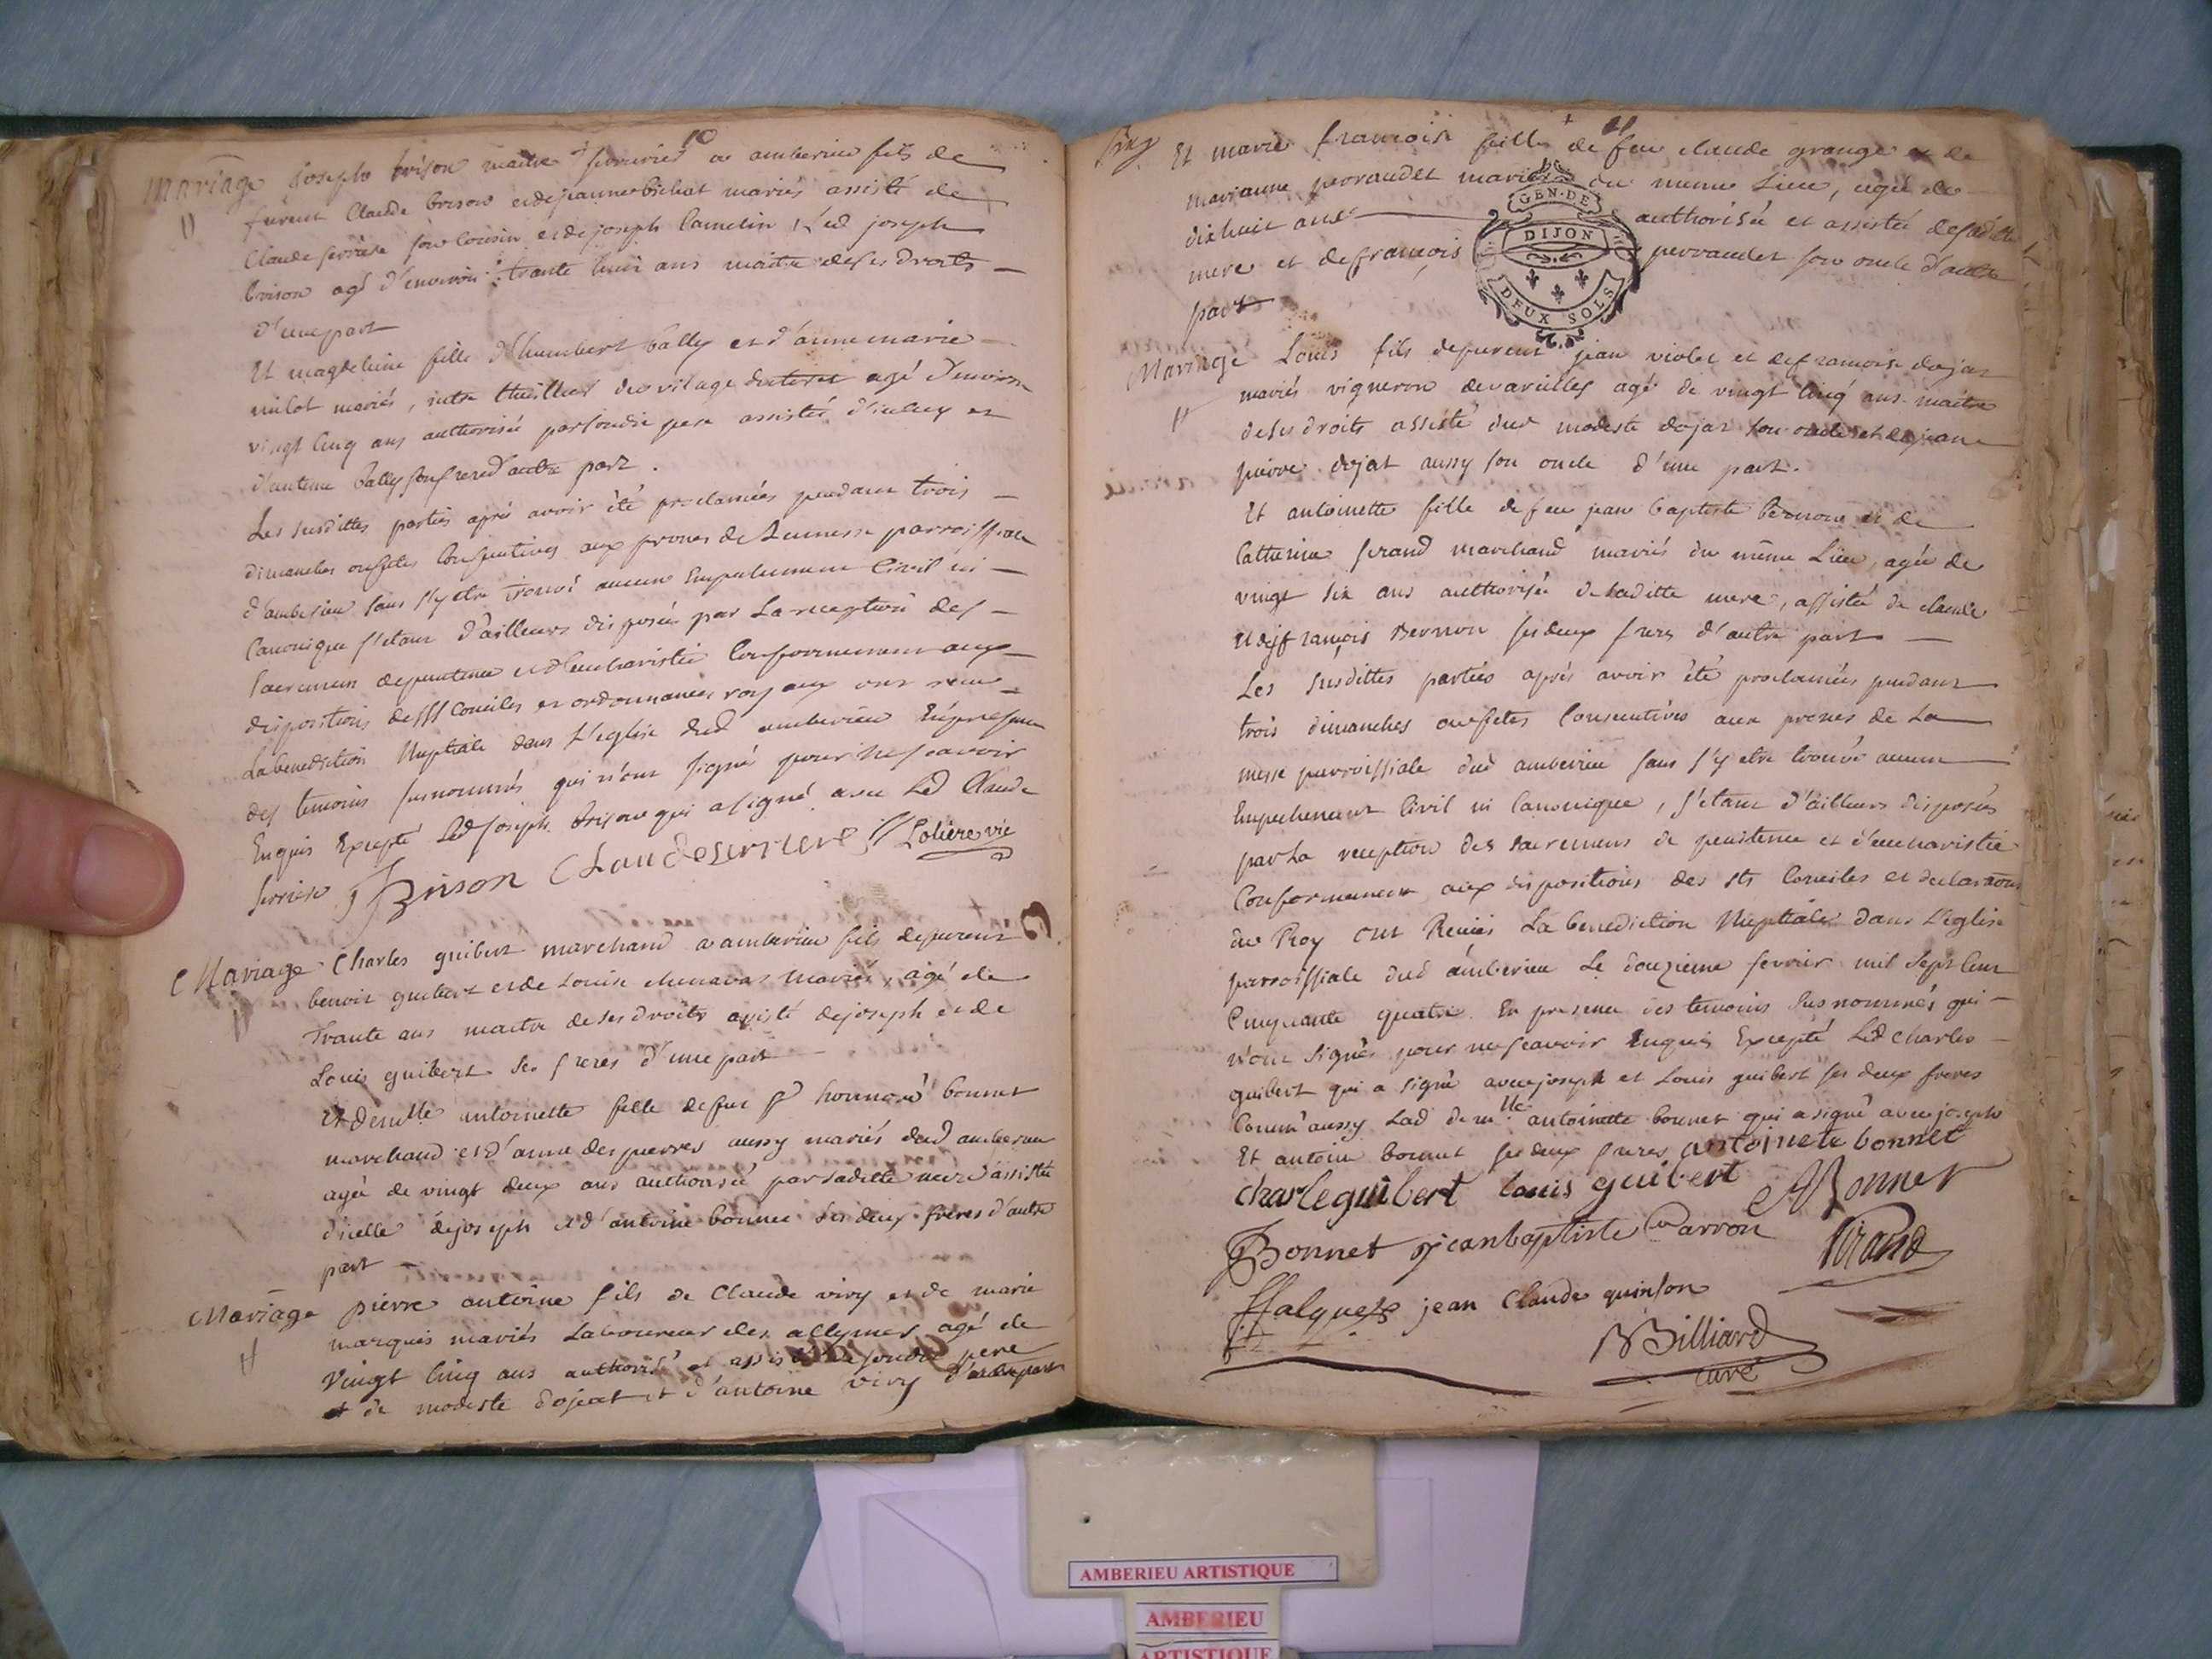 10
Mariage Joseph brison maitre serrurier a amberieu fils de
furent Claude brison et de jeanne bichat mariés assisté de
Claude serriere son cousin et de joseph Camelin Led joseph
brison agé d'environ trante huit ans maitre de ses droits
d'une part
Et magdelaine fille d'humbert bally et d'anne marie
milot mariés, agé d'environ
vingt cinq ans authorisée par sondit pere assistée d'iceluy et
d'antoine bally son frere d'autre part.
Les susdittes parties après avoir été proclamées pendant trois
dimanches ou fetes consecutives aux prones de La messe parroissiale
d'amberieu sans s'y etre trouvé aucun Empechement Civil ni
Canonique s'etant d'ailleurs disposés par La reception des
sacremens de penitence et d'eucharistie Conformement aux
dispositions des SSts Conciles et ordonnances royaux ont recu
La benediction Nuptiale dans L'eglise dud amberieu En presence
des temoins susnommés qui n'ont signé pour ne scavoir
Enquis Excepté Led joseph brison qui a signé avec Led Claude
serriere J Brison Claude serriere Lolière vic
Mariage Charles guibert marchand a amberieu fils de furent
benoit guibert et de Louise mariés, agé de
trante ans maitre de ses droits assisté de joseph et de
Louis guibert ses freres d'une part
Et demlle antoinette fille de feu sr honnoré bonnet
marchand et d'anne despierres aussy mariés dud amberieu
agée de vingt deux ans authorisée par saditte mere assistée
d'icelle de joseph et d'antoine bonnet ses deux freres d'autre
part
Mariage pierre antoine fils de Claude vivy et de marie
marquis mariés Laboureur des allymes agé de
vingt cinq ans authorisé et assisté de sondit pere
et de modeste dojat et d'antoine vivy d'une part
11
Et marie francoise fille de feu claude grange et de
marianne perraudet mariés du meme Lieu, agée de
dix huit ans authorisée et assistée de saditte
mere et de françois perraudet son oncle d'autre
part
GEN. DE
DIJON
DEUX SOLS
Mariage Louis fils de furent jean violet et de francoise dojat
mariés vigneron de vareilles agé de vingt cinq ans maitre
de ses droits assisté dud modeste dojat son oncle et de jean
pierre dojat aussy son oncle d'une part.
Et antoinette fille de feu jean baptiste bernon et de
Catherine ferand marchand mariés du même Lieu, agée de
vingt six ans authorisée de saditte mere, assistée de claude
et de françois Bernon ses deux freres d'autre part
Les susdittes parties après avoir été proclamées pendant
trois dimanches ou fetes Consecutives aux prones de La
messe parroissiale dud amberieu sans s'y etre trouvé aucun
Empechement Civil ni Canonique, s'etant d'ailleurs disposés
par La reception des sacremens de penitence et d'eucharistie
Conformement aux dispositions des sts Conciles et declarations
du Roy ont Recues La benediction Nuptiale dans L'eglise
parroissiale dud amberieu Le douzieme fevrier mil sept cent
Cinquante quatre En presence des temoins susnommés qui
n'ont signés pour ne scavoir Enquis Excepté Led Charles
guibert qui a signé avec joseph et Louis guibert ses deux freres
Comm'aussy Lad demlle antoinette bonnet qui a signé avec joseph
Et antoine bonnet ses deux freres antoinete bonnet
charle guibert louis guibert ABonnet
JBonnet jean baptiste Carron Tirand
ffalquet jean Claude quinson
BBilliard
curé
AMBERIEU ARTISTIQUE
AMBERIEU
ARTISTIQUE